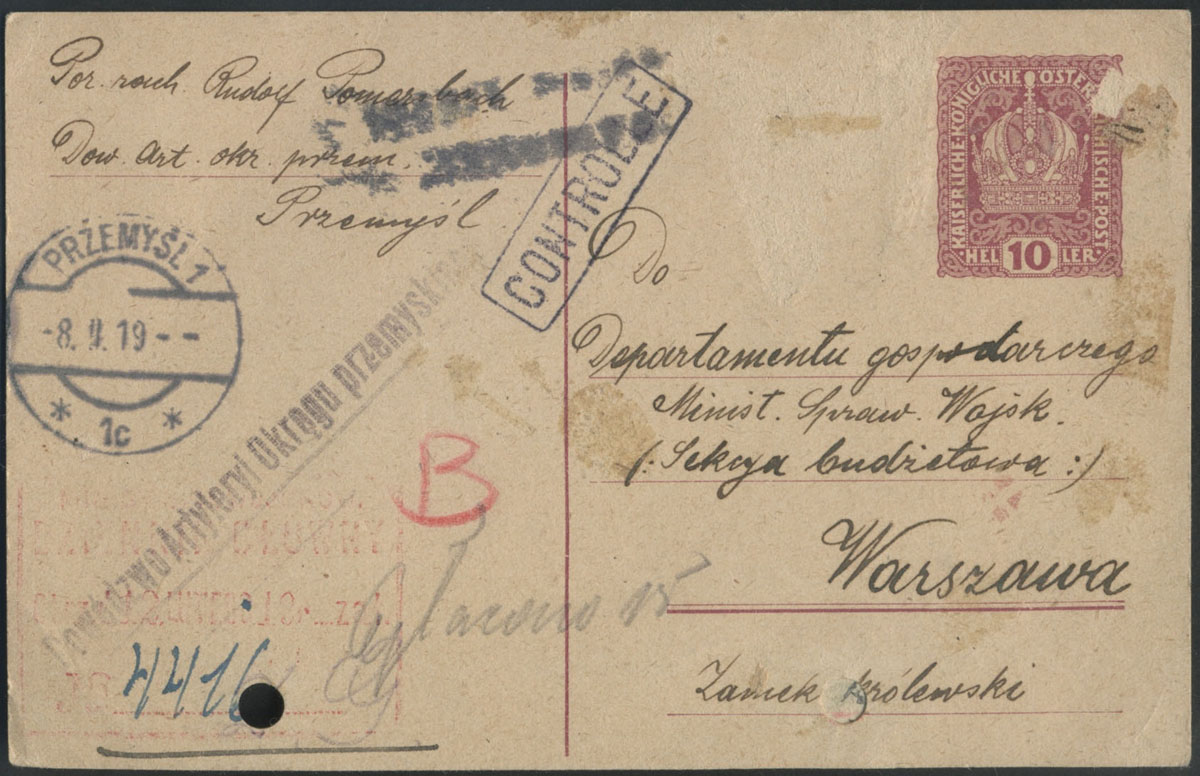 Por. rach. Rudolf Pomarbach
Dow. Art. okr. przem.
Przemyśl.
CONTROLLE
KAISERLICHE KÖNIGLICHE ÖSTERREICHISCHE POST
HELLER
10
PRZEMYŚL 1
-8. II. 19 - -
* 1c *
Dowództwo Artyleryi Okręgu przemyskiego
Do
Departamentu gospodarczego
Minist. Spraw. Wojsk.
(: Sekcya budżetowa :)
Warszawa
Zamek królewski
B
4416